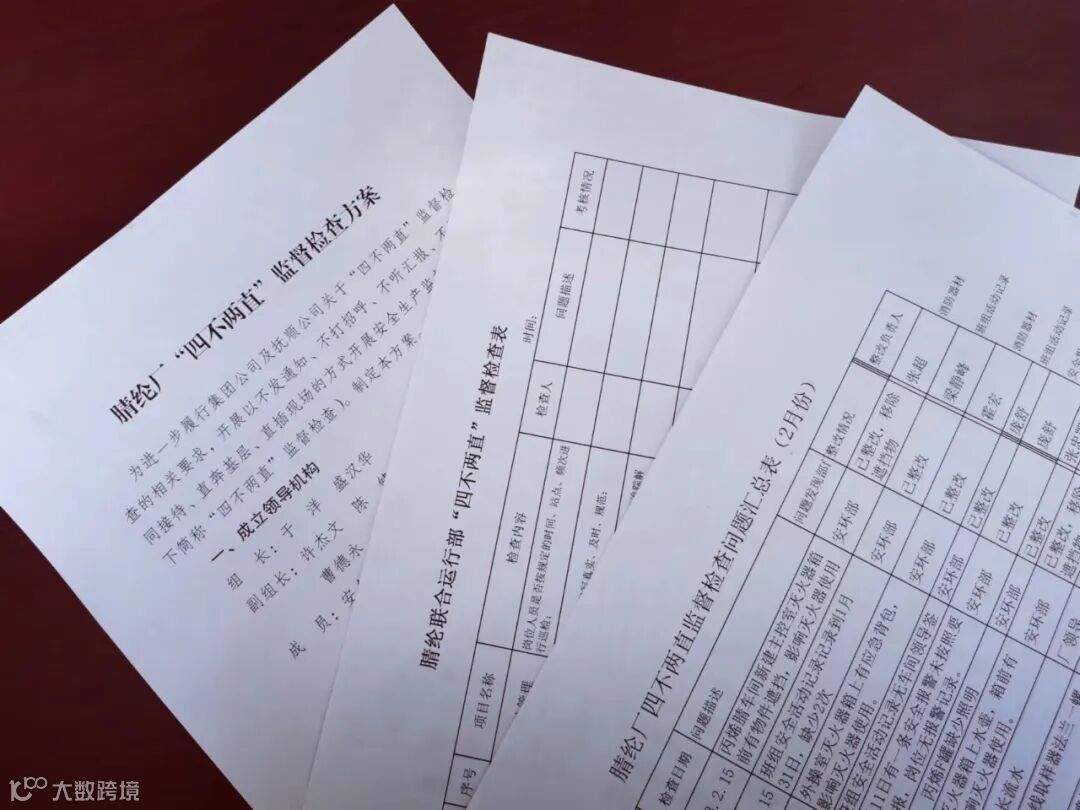 腈纶厂“四不两直”监督检查方案
为进一步履行集团公司及抚顺公司关于“四不两直”监督检
查的相关要求，开展以不发通知、不打招呼、不听汇报、不
同接待、直奔基层、直插现场的方式开展安全生产监
下简称“四不两直”监督检查），制定本方案
一、成立领导机构
组 长：于 洋 盛汉华
副组长：许杰文 陈
曹德水
成 员：安
腈纶联合运行部“四不两直”监督检查表
时间：
序号 项目名称 检查内容 检查人 问题描述 考核情况
管理 岗位人员是否按规定的时间、站点、频次进
行巡检；
真实、及时、规范；
腈纶厂四不两直监督检查问题汇总表（2月份）
检查日期 问题描述 问题发现部门 整改情况 整改负责人
2.15 丙烯腈车间新建主控室灭火器箱
前有物件遮挡，影响灭火器使用 安环部 已整改，移除
遮挡物 张超 消防器材
15 班组安全活动记录记录到1月
31日，缺少2次 安环部 已整改 梁静峰 班组活动记录
外操室灭火器箱上有应急背包，
影响灭火器使用。 安环部 已整改 霍宏 消防器材
组安全活动记录无车间领导签 安环部 已整改 庞舒 班组活动记录
1日有一条安全报警未按照要
，岗位无报警记录。 安环部 已整改 庞舒
丙烯腈罐缺少照明 安环部 已整改
火器箱上水壶，箱前有
灭火器使用。 安环部 已整改，移除
遮挡物
流水 厂领导
大数跨境